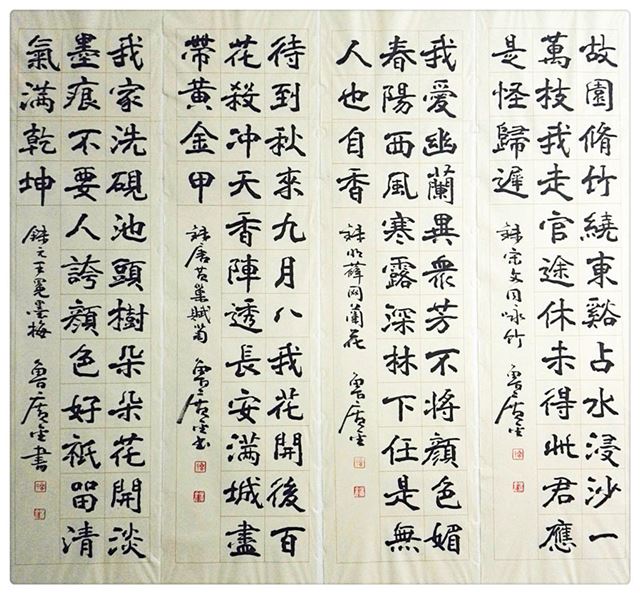 故園脩竹繞東谿占水浸沙一
萬枝我走官途休未得此君應
是怪歸遲
錄宋文同咏竹 魯廣金
我愛幽蘭異衆芳不將顔色媚
春陽西風寒露深林下任是無
人也自香
錄明薛网蘭花 魯廣金
待到秋來九月八我花開後百
花殺冲天香陣透長安满城盡
帶黃金甲
錄唐黃巢賦菊 魯廣金書
我家洗硯池頭樹朵朵花開淡
墨痕不要人誇顔色好祇留清
氣满乾坤
錄元王冕墨梅 魯廣金書